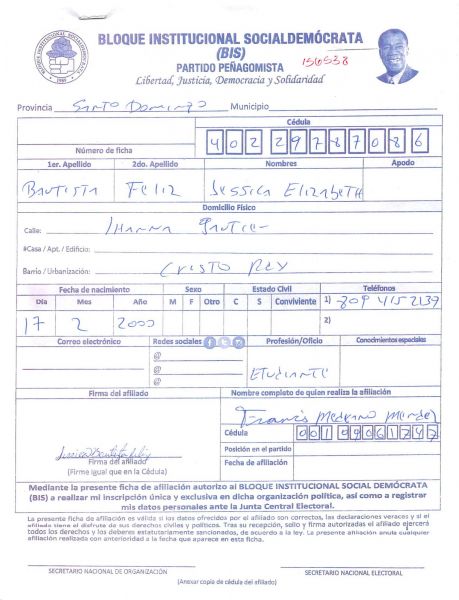 BLOQUE INSTITUCIONAL SOCIALDEMÓCRATA
(BIS)
156538
PARTIDO PEÑAGOMISTA
Libertad, Justicia, Democracia y Solidaridad
Provincia Santo Domingo Municipio
Cédula
Número de ficha 402 2978708 6
1er. Apellido 2do. Apellido Nombres Apodo
Bautista Feliz Jessica Elizabeth
Domicilio Físico
Calle:
#Casa / Apt. / Edificio:
Barrio / Urbanización: Cristo Rey
Fecha de nacimiento Sexo Estado Civil Teléfonos
Día Mes Año M F Otro C S Conviviente 1) 809 415 2139
17 2 2000 2)
Correo electrónico Redes sociales Profesión/Oficio Conocimientos especiales
@
@ Etudiante
@
Firma del afiliado Nombre completo de quien realiza la afiliación
Francis Medrano Mendez
Cédula 001 0906174 7
Posición en el partido
Firma del afiliado
(Firma igual que en la Cédula) Fecha de afiliación
Mediante la presente ficha de afiliación autorizo al BLOQUE INSTITUCIONAL SOCIAL DEMÓCRATA
(BIS) a realizar mi inscripción única y exclusiva en dicha organización política, así como a registrar
mis datos personales ante la Junta Central Electoral.
La presente ficha de afiliación es válida si los datos ofrecidos por el afiliado son correctos, las declaraciones veraces y si el
afiliado tiene el disfrute de sus derechos civiles y políticos. Tras su recepción, sello y firma autorizadas el afiliado ejercerá
todos los derechos y los deberes estatutariamente sancionados, de acuerdo a la ley. La presente afiliación anula cualquier
afiliación realizada con anterioridad a la fecha que aparece en esta ficha.
SECRETARIO NACIONAL DE ORGANIZACIÓN SECRETARIO NACIONAL ELECTORAL
(Anexar copia de cédula del afiliado)